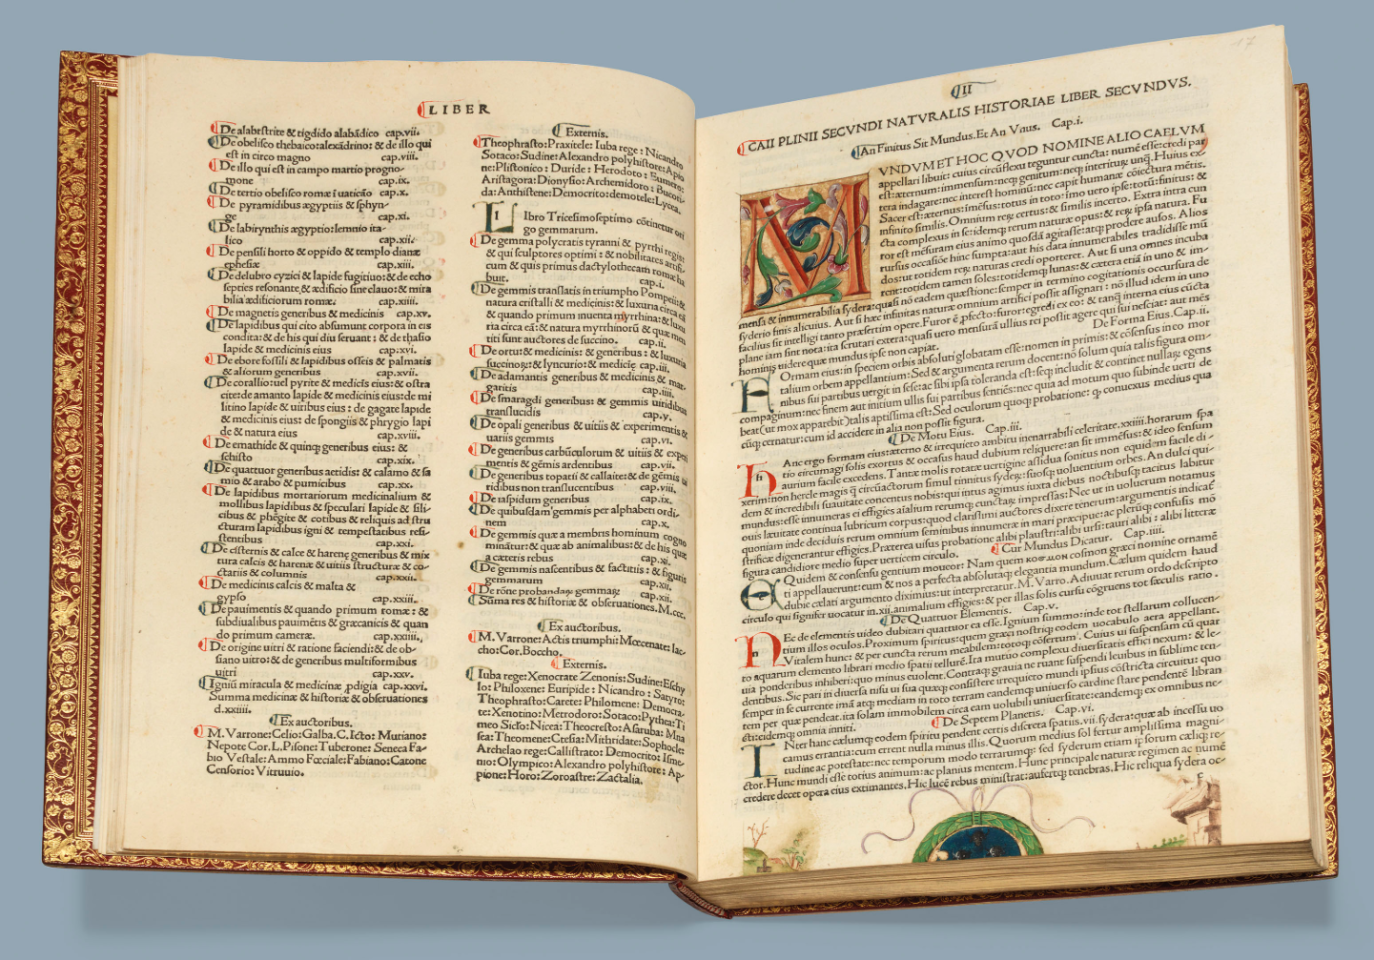 LIBER
De alabestrite & tigdido alabādico cap.vii.
De obelisco thebaico:alexādrino: & de illo qui
est in circo magno cap.viii.
De illo qui est in campo martio progno-
mone cap.ix.
De tertio obelisco romæ ī uaticāo cap.x.
De pyramidibus ægyptiis & sphyn-
ge cap.xi.
De labirynthis ægyptio:lemnio ita-
lico cap.xii.
De pensili horto & oppido & templo dianæ
ephesiæ cap.xiii.
De delubro cyzici & lapide fugitiuo: & de echo
septies resonante & ædificio sine clauo: & mira
bilia ædificiorum romæ. cap.xiiii.
De magnetis generibus & medicinis cap.xv.
De lapidibus qui cito absumunt corpora in eis
condita: & de his qui diu seruant : & de thasio
lapide & medicinis eius cap.xvi.
De ebore fossili & lapidibus osseis & palmatis
& aliorum generibus cap.xvii.
De corallio:uel pyrite & medicīs eius: & ostra
cite:de amanto lapide & medicinis eius:de mi
litino lapide & uitibus eius : de gagate lapide
& medicinis eius: de spongiis & phrygio lapi
de & natura eius cap.xviii.
De emathide & quinq; generibus eius: &
schisto cap.xix.
De quattuor generibus aetidis: & calamo & sa
mio & arabo & pumicibus cap.xx.
De lapidibus mortariorum medicinalium &
mollibus lapidibus & speculari lapide & sili-
cibus & phēgite & cotibus & reliquis ad stru
cturam lapidibus igni & tempestatibus resi-
stentibus cap.xxi.
De cisternis & calce & harenę generibus & mix
tura calcis & harenæ & uitiis structuræ & co-
ctariis & columnis cap.xxii.
De medicinis calcis & malta &
gypso cap.xxiii.
De pauimentis & quando primum romæ: &
subdiualibus pauimētis & græcanicis & quan
do primum cameræ. cap.xxiiii.
De origine uitri & ratione faciendi: & de ob-
siano uitro: & de generibus multiformibus
uitri cap.xxv.
Igniū miracula & medicinæ ꝓdigia cap.xxvi.
Summa medicinæ & historiæ & obseruationes
d.xxiiii.
Ex auctoribus.
M. Varrone:Celio:Galba.C.Icto: Mutiano:
Nepote Cor.L.Pisone:Tuberone: Seneca Fa-
bio Vestale: Ammo Fœciale:Fabiano:Catone
Censorio: Vitruuio.
Externis.
Theophrasto:Praxitele: Iuba rege : Nicandro
Sotaco:Sudine:Alexandro polyhistore:Apio
ne:Plistonico : Duride : Herodoto : Eumero:
Aristagora:Dionysio:Archemidoro : Bucoti-
da:Anthistene:Democrito:demotele:Lycea.
LIbro Tricesimoseptimo cōtinetur ori
go gemmarum.
De gemma polycratis tyranni & pyrrhi regis
& qui sculptores optimi : & nobilitates artifi-
cum & quis primus dactylothecam romæ ha
buit. cap.i.
De gemmis translatis in triumpho Pompeii: &
natura cristalli & medicinis: & luxuria circa eā
& quando primum inuenta myrrhina: & luxu
ria circa eā: & natura myrrhinorū & quæ men
titi sunt auctores de succino. cap.ii.
De ortu: & medicinis: & generibus : & luxuria
succinoꝝ: & lyncurio: & medicīe cap.iii.
De adamantis generibus & medicinis & mar-
garitis cap.iiii.
De smaragdi generibus: & gemmis uiridibus
translucidis cap.v.
De opali generibus & uitiis & experimentis &
uariis gemmis cap.vi.
De generibus carbūculorum & uitiis & experi
mentis & gēmis ardentibus cap.vii.
De generibus topatii & callaite: & de gēmis ui
ridibus non translucentibus cap.viii.
De iaspidum generibus cap.ix.
De quibusdam gemmis per alphabeti ordi-
nem cap.x.
De gemmis quæ a membris hominum cogno
minātur: & quæ ab animalibus: & de his quæ
a cæteris rebus cap.xi.
De gemmis nascentibus & factitiis : & figuris
gemmarum cap.xii.
De rōne probandaꝝ gemmaꝝ cap.xii.
Sūma res & historiæ & obseruationes.M.ccc.
Ex auctoribus.
M. Varrone: Actis triumphi: Mecenate: Iac-
cho: Cor.Boccho.
Externis.
Iuba rege:Xenocrate Zenonis: Sudine:Eschy
lo: Philoxene: Euripide : Nicandro : Satyro:
Theophrasto: Carete: Philomene: Democra-
te: Xenotimo: Metrodoro: Sotaco: Pythea: Ti
meo Siculo: Nicea: Theocresto: Asaruba: Mna
sea: Theomene: Ctesia: Mithridate: Sophocle:
Archelao rege: Callistrato: Democrito: Isme-
nio: Olympico: Alexandro polyhistore: Ap-
pione: Horo: Zoroastre: Zactalia.
17
II
CAII PLINII SECVNDI NATVRALIS HISTORIAE LIBER SECVNDVS.
An Finitus Sit Mundus. Et An Vnus. Cap.i.
MVNDVM ET HOC QVOD NOMINE ALIO CAELVM
appellari libuit: cuius circūflexu teguntur cuncta: numē esse: credi par
est: æternum: immensum: neq; genitum: neq; interiturū unq̄. Huius ex
tera indagare: nec interest hominū: nec capit humanæ cōiectura mētis.
Sacer est: æternus: imēsus: totus in toto: imo uero ipse: totū: finitus: &
infinito similis. Omnium reꝝ certus: & similis incerto. Extra intra cun
cta complexus in se: idemq; rerum naturæ opus: & reꝝ ipsa natura. Fu
ror est mēsuram eius animo quosdā agitasse: atq; prodere ausos. Alios
rursus occasiōe hinc sumpta: aut his data innumerabiles tradidisse mū
dos: ut totidem reꝝ naturas credi oporteret. Aut si una omnes incuba
rent: totidem tamen soles: totidemq; lunas: & cætera etiā in uno & im-
mensa & innumerabilia sydera: quasi nō eadem quæstione: semper in termino cogitationis occursura de
syderio finis alicuius. Aut si hæc infinitas naturæ omnium artifici possit assignari : nō illud idem in uno
facilius sit intelligi tanto præsertim opere. Furor ē ꝓfecto: furor: egredi ex eo: & tanq̄ interna eius cūcta
plane iam sint nota: ita scrutari extera: quasi uero mensurā ullius rei possit agere qui sui nesciat: aut mēs
hominis uidere quæ mundus ipse non capiat. De Forma Eius. Cap.ii.
FOrmam eius: in speciem orbis absoluti globatam esse: nomen in primis: & cōsensus in eo mor
talium orbem appellantium: Sed & argumenta rerum docent: nō solum quia talis figura om-
nibus sui partibus uergit in sese: ac sibi ipsa toleranda est: seq; includit & continet nullaꝝ egens
compaginum: nec finem aut initium ullis sui partibus sentiēs: nec quia ad motum quo subinde uerti de
beat (ut mox apparebit) talis aptissima est: Sed oculorum quoq; probatione: q̄ conuexus medius qua
cūq; cernatur: cum id accidere in alia non possit figura.
De Motu Eius. Cap.iii.
HAnc ergo formam eius: æterno & irrequieto ambitu inenarrabili celeritate. xxiiii. horarum spa
tio circumagi solis exortus & occasus haud dubium reliquere: an sit immēsus: & ideo sensum
aurium facile excedens. Tantæ molis rotatæ uertigine assidua sonitus non equidem facile di-
xerim: non hercle magis q̄ circūactorum simul tinnitus syderꝝ: suosq; uoluentium orbes. An dulci qui-
dem & incredibili suauitate concentus nobis: qui intus agimus iuxta diebus noctibusq; tacitus labitur
mundus: esse innumeras ei effigies aīalium rerumq; cunctaꝝ impressas: Nec ut in uolucrum notamus
ouis læuitate continua lubricum corpus: quod clarissimi auctores dixere tenerum: argumentis indicat̄
quoniam inde deciduis rerum omnium seminibus innumeræ in mari præcipue: ac plerūq; confusis mō
strificæ dignerantur effigies. Præterea uisus probatione alibi plaustri: alibi ursi: tauri alibi : alibi litteræ
figura candidiore medio super uerticem circulo. Cur Mundus Dicatur. Cap.iiii.
EQuidem & consensu gentium moueor: Nam quem κοσμον cosmon græci nomine ornamē
ti appellauerunt: eum & nos a perfecta absolutaq; elegantia mundum. Cælum quidem haud
dubie cælati argumento diximus: ut interpretatur. M. Varro. Adiuuat rerum ordo descripto
circulo qui signifer uocatur in. xii. animalium effigies: & per illas solis cursu cōgruens tot sæculis ratio.
De Quattuor Elementis. Cap.v.
NEc de elementis uideo dubitari quattuor ea esse. Ignium summo: inde tot stellarum collucen-
tium illos oculos. Proximum spiritus: quem græci nostriq; eodem uocabulo aera appellant.
Vitalem hunc: & per cuncta rerum meabilem: totoq; cōsertum. Cuius ui suspensam cū quar
to aquarum elemento librari medio spatii tellurē. Ita mutuo complexu diuersitatis effici nexum: & le-
uia ponderibus inhiberi: quo minus euolent. Contraq; grauia ne ruant suspendi leuibus in sublime ten-
dentibus. Sic pari in diuersa nisu ui sua quæq; consistere irrequieto mundi ipsius cōstricta circuitu: quo
semper in se currente imā atq; mediam in toto terram eandemq; uniuerso cardine stare pendentē libran
tem per quæ pendeat. ita solam immobilem circa eam uolubili uniuersitate: eandemq; ex omnibus ne-
cti: eidemq; omnia inniti. De Septem Planetis. Cap.vi.
INter hanc cælumq; eodem spiritu pendent certis discreta spatiis. vii. sydera: quæ ab incessu uo
camus errantia: cum errent nulla minus illis. Quorum medius sol fertur amplissima magni-
tudine ac potestate: nec temporum modo terrarumq; sed syderum etiam ipsorum cæliq; re-
ctor. Hunc mundi esse totius animum: ac planius mentem. Hunc principale naturæ regimen ac numē
credere decet opera eius extimantes. Hic lucē rebus ministrat: aufertq; tenebras. Hic reliqua sydera oc-